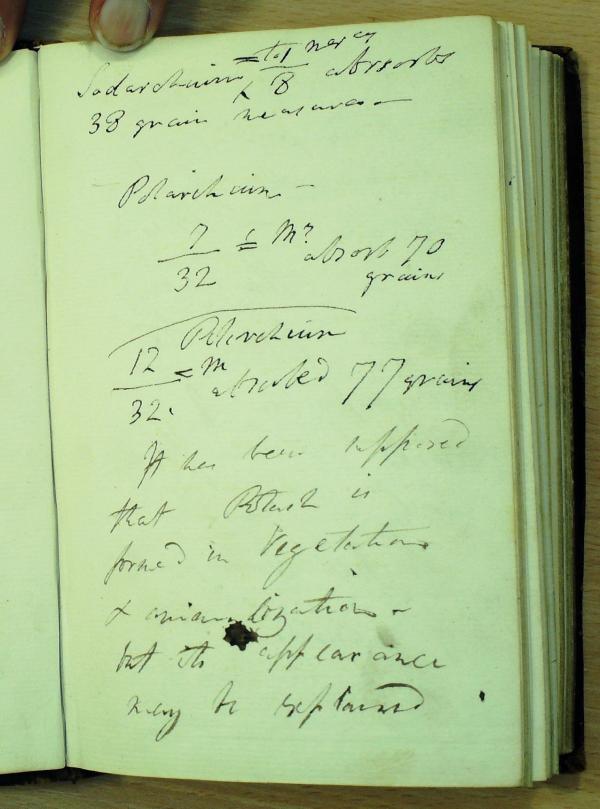 Sodarchium = to 1/8 mercy absorbs
38 grain measures -
Potarchium -
7/32 = M? absorb 70
grains
Potarchium
12/32. = m absorbed 77 grains
It has been supposed
that Potash is
formed in Vegetation
& animalization -
but its appearance
may be explained